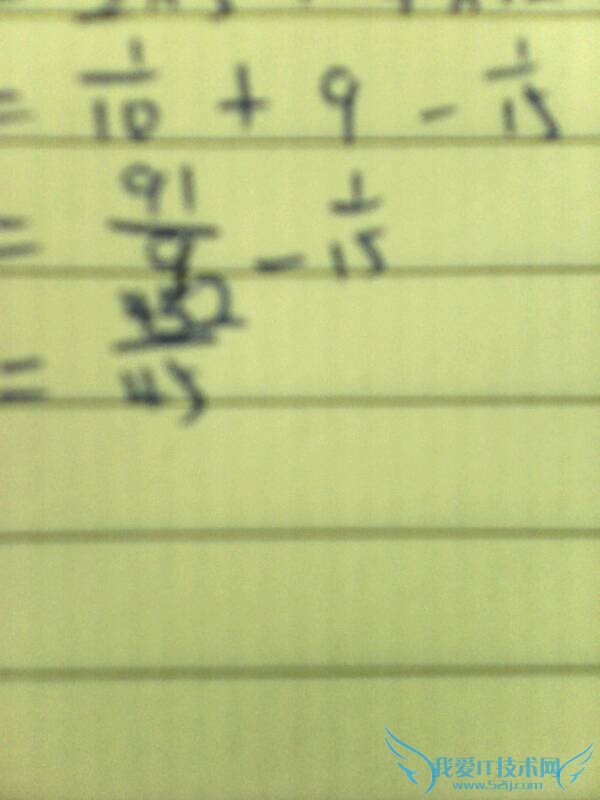 = 1/10 + 9 - 1/15
= 91/9 - 1/15
= 452/45
我爱IT技术网
www.52ij.com